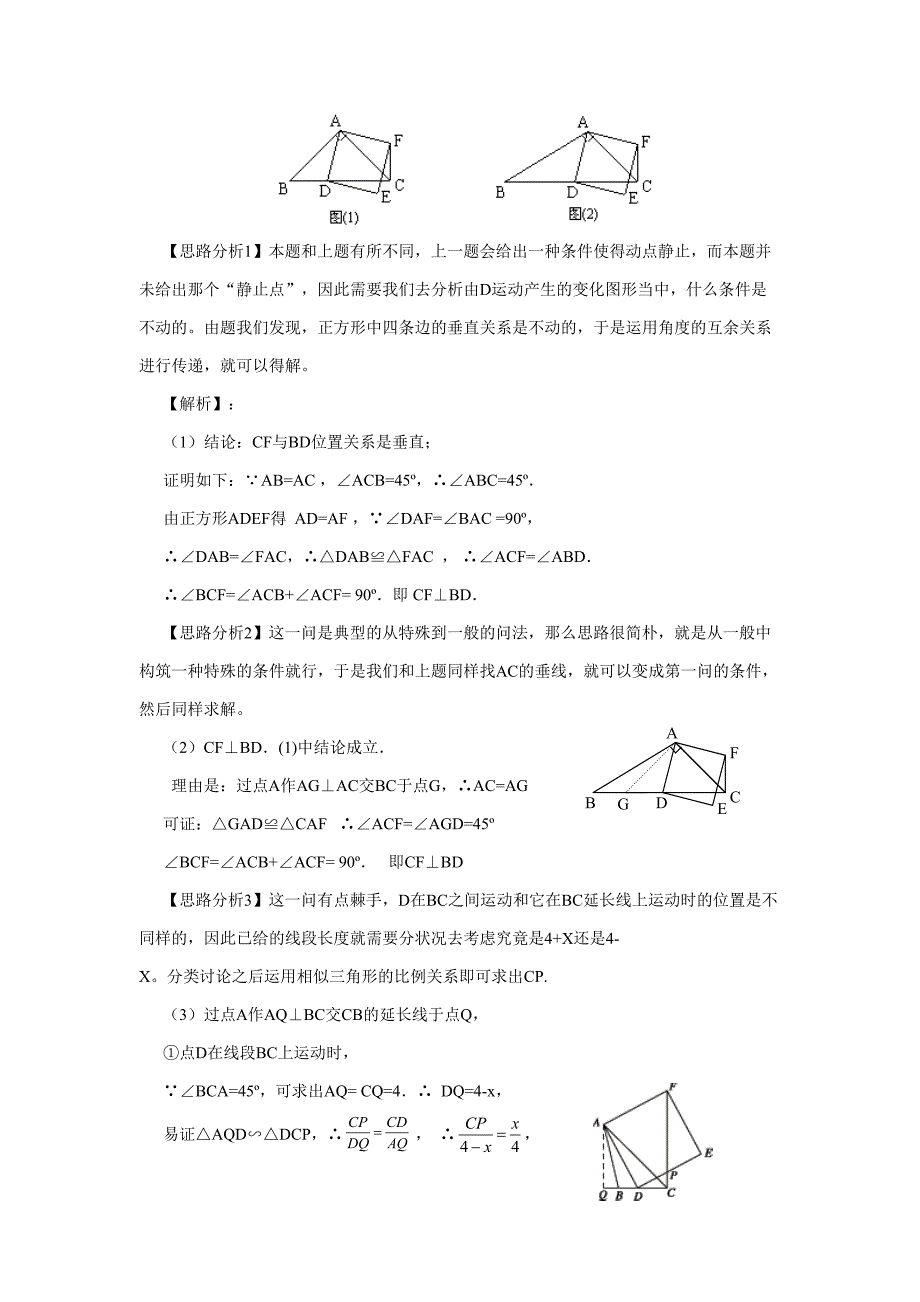 A
F
B
D
E
C
图(1)
A
F
B
D
E
C
图(2)
【思路分析1】本题和上题有所不同，上一题会给出一种条件使得动点静止，而本题并
未给出那个“静止点”，因此需要我们去分析由D运动产生的变化图形当中，什么条件是
不动的。由题我们发现，正方形中四条边的垂直关系是不动的，于是运用角度的互余关系
进行传递，就可以得解。
【解析】：
（1）结论：CF与BD位置关系是垂直；
证明如下：∵AB=AC ，∠ACB=45º，∴∠ABC=45º．
由正方形ADEF得 AD=AF ，∵∠DAF=∠BAC =90º，
∴∠DAB=∠FAC，∴△DAB≌△FAC ， ∴∠ACF=∠ABD．
∴∠BCF=∠ACB+∠ACF= 90º．即 CF⊥BD．
【思路分析2】这一问是典型的从特殊到一般的问法，那么思路很简朴，就是从一般中
构筑一种特殊的条件就行，于是我们和上题同样找AC的垂线，就可以变成第一问的条件，
然后同样求解。
（2）CF⊥BD．(1)中结论成立．
理由是：过点A作AG⊥AC交BC于点G，∴AC=AG
可证：△GAD≌△CAF ∴∠ACF=∠AGD=45º
∠BCF=∠ACB+∠ACF= 90º． 即CF⊥BD
A
F
B
G
D
E
C
【思路分析3】这一问有点棘手，D在BC之间运动和它在BC延长线上运动时的位置是不
同样的，因此已给的线段长度就需要分状况去考虑究竟是4+X还是4-
X。分类讨论之后运用相似三角形的比例关系即可求出CP.
（3）过点A作AQ⊥BC交CB的延长线于点Q，
①点D在线段BC上运动时，
∵∠BCA=45º，可求出AQ= CQ=4．∴ DQ=4-x，
易证△AQD∽△DCP，∴CP/DQ=CD/AQ ， ∴CP/(4−x)=x/4，
F
A
E
P
Q
B
D
C